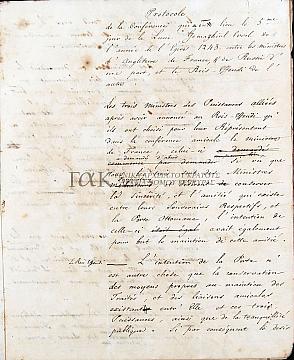 Protocole
de la Conférence qui a eu lieu le 5me
jour de la Lune
l'année de l'Égire 1243. entre les ministres
d'Angleterre de France, & de Russie d'
une part, et le Reis-Efendi de l'
autre.
Les trois ministres des Puissances alliées
après avoir annoncé au Reis-Effendi qu'
ils ont choisi pour leur Représentant
dans la conférence le ministre
de France celui-ci a demandé
vu que
Ministres
conserver
la sincérité, et l'amitié qui existe
entre leurs Souverains Respectifs, et
la Porte Ottomane, l'intention de
celle-ci était également
pour but le maintien de cette amitié
L'intention de la Porte n'
est autre chose que la conservation
des moyens propres au maintien des
Traités et des liaisons amicales
existantes entre Elle et ces trois
Puissances, ainsi que de la tranquillité
publique. Si par conséquent le désir
ΓΑΚ